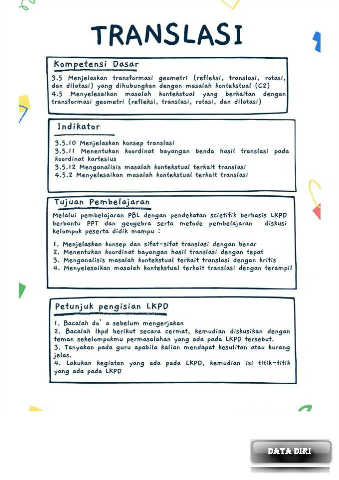 TRANSLASI
Kompetensi Dasar
3.5 Menjelaskan transformasi geometri (refleksi, translasi, rotasi,
dan dilatasi) yang dihubungkan dengan masalah kontekstual (C2)
4.5 Menyelesaikan masalah kontekstual yang berkaitan dengan
transformasi geometri (refleksi, translasi, rotasi, dan dilatasi)
Indikator
3.5.10 Menjelaskan konsep translasi
3.5.11 Menentukan koordinat bayangan benda hasil translasi pada
koordinat kartesius
3.5.12 Menganalisis masalah kontekstual terkait translasi
4.5.2 Menyelesaikan masalah kontekstual terkait translasi
Tujuan Pembelajaran
Melalui pembelajaran PBL dengan pendekatan scietifik berbasis LKPD
berbantu PPT dan geogebra serta metode pembelajaran diskusi
kelompok peserta didik mampu :
1. Menjelaskan konsep dan sifat-sifat translasi dengan benar
2. Menentukan koordinat bayangan hasil translasi dengan tepat
3. Menganalisis masalah kontekstual terkait translasi dengan kritis
4. Menyelesaikan masalah kontekstual terkait translasi dengan terampil
Petunjuk pengisian LKPD
1. Bacalah do'a sebelum mengerjakan
2. Bacalah lkpd berikut secara cermat, kemudian diskusikan dengan
teman sekelompokmu permasalahan yang ada pada LKPD tersebut.
3. Tanyakan pada guru apabila kalian mendapat kesulitan atau kurang
jelas.
4. Lakukan kegiatan yang ada pada LKPD, kemudian isi titik-titik
yang ada pada LKPD
DATA DIRI